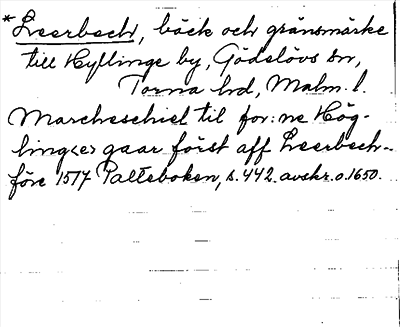 *Leerbech, bäck och gränsmärke
till Hyllinge by, Gödelövs sn,
Torna hd, Malm. l.
Marcheschiel til for:ne Hög-
ling<e> gaar först aff Leerbech-
före 1517 Palteboken, s. 442. avskr. o. 1650.